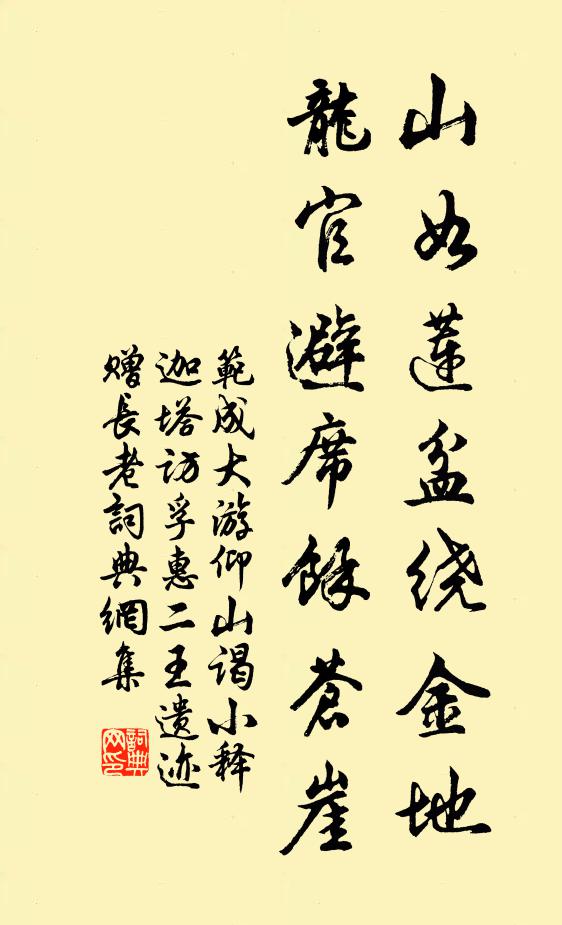 山如蓮盆绕金地
龍官避席餘蒼崖
範成大游仰山謁小释
迦塔访孚惠二王遗迹
赠長老詞典網集
詞典网印